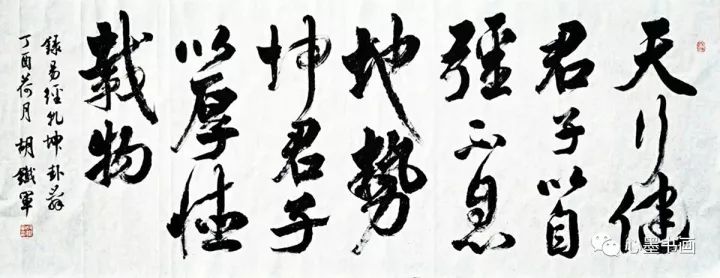 天行健
君子以自
强不息
地势
坤君子
以厚德
载物
録易經乾坤卦辭
丁酉荷月 胡鐵軍
心墨书画